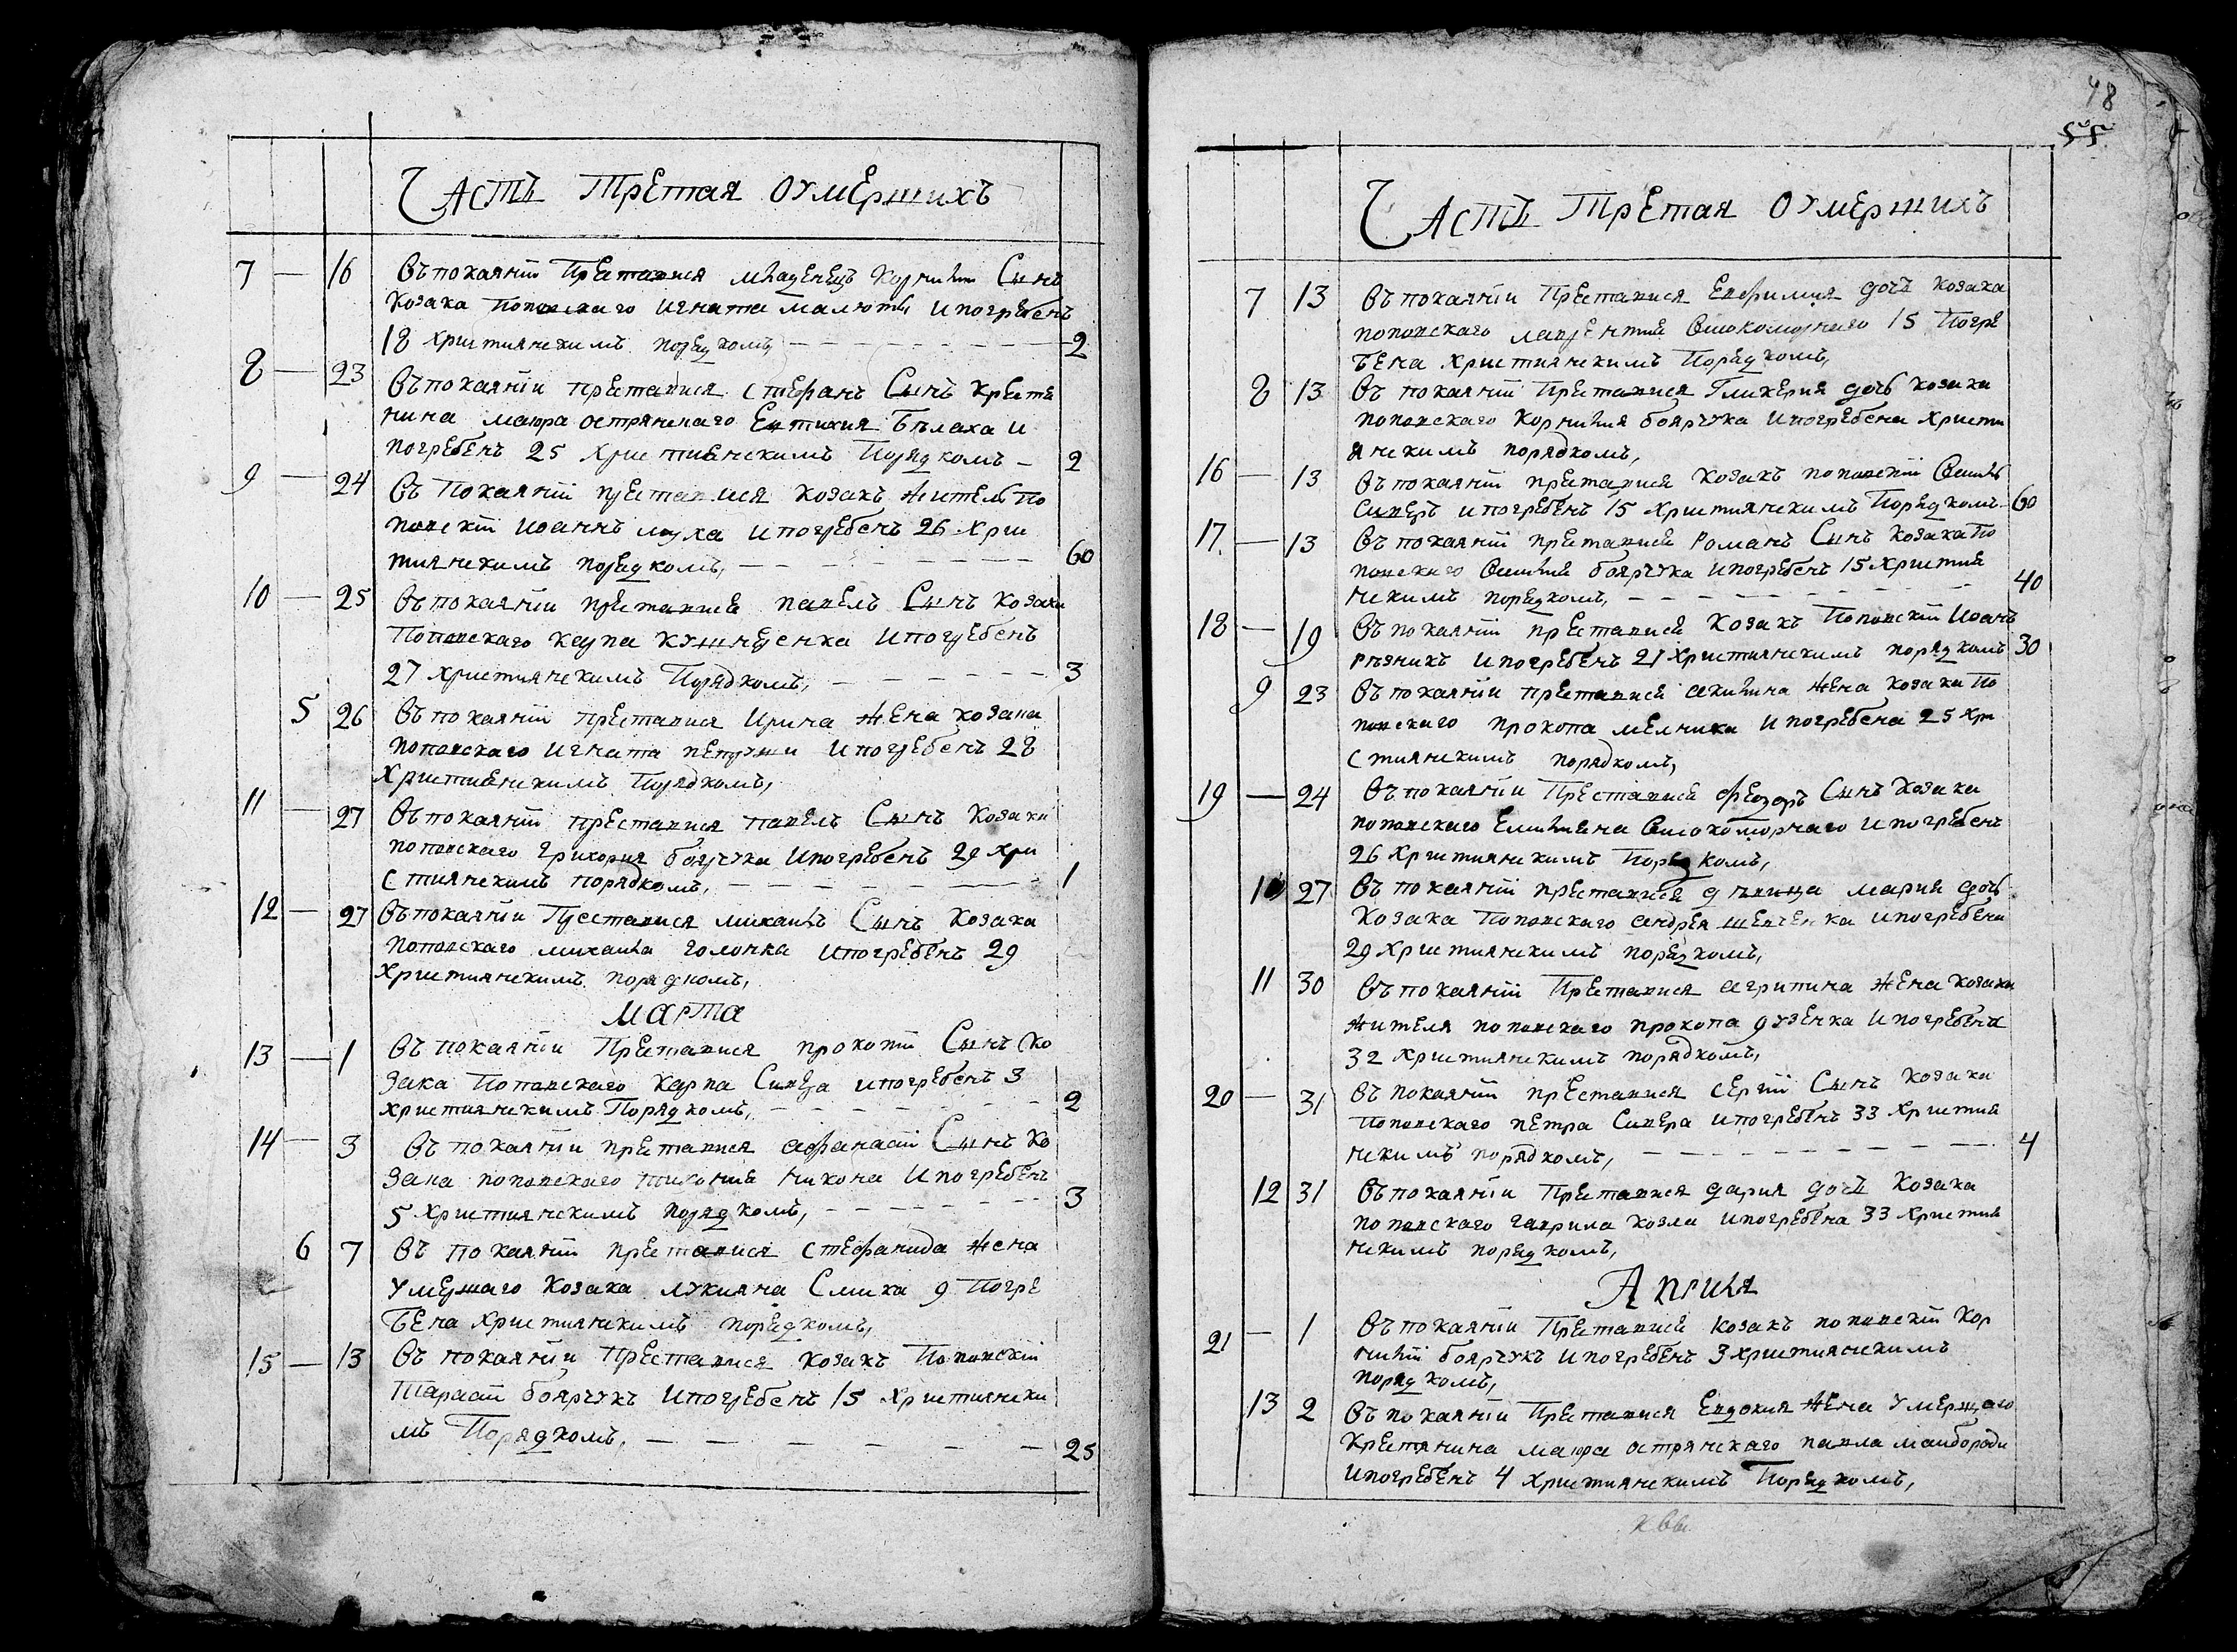 Часть Третая Оумершихъ
7 — 16 Въ покаяніи Преставися младенецъ Корнилій Сынъ
Козака Поповскаго Игната Малюты и погребенъ
18 християнскимъ порядкомъ, — 2
8 — 23 Въ покаяніи преставися Стефанъ Сынъ Крестя
нина маіора острянскаго Евтихия Бѣлаха и
погребенъ 25 християнскимъ Порядкомъ — 2
9 — 24 Въ Покаяніи преставися козакъ житель По
повскій Иоаннъ муха и погребенъ 26 Хрис
тиянскимъ порядкомъ, — 60
10 — 25 Въ покаяніи преставися павелъ Сынъ Козака
Поповскаго Карпа Кушнѣренка и погребенъ
27 християнскимъ Порядкомъ, — 3
5 26 Въ покаяніи преставися Ирина жена козака
поповскаго Игната и погребенъ 28
Християнскимъ Порядкомъ,
11 — 27 Въ покаяніи преставися павелъ Сынъ Козака
поповскаго Григория боярчука и погребенъ 29 хри
стиянскимъ порядкомъ, — 1
12 — 27 Въ покаяніи Преставися михаилъ Сынъ Козака
поповскаго михаила головка и погребенъ 29
Християнскимъ порядкомъ,
Марта
13 — 1 Въ покаяніи Преставися прокопій Сынъ Ко
зака Поповскаго Карпа Сивера и погребенъ 3
християнскимъ Порядкомъ, — 2
14 — 3 Въ покаяніи преставися афанасій Сынъ Ко
зака поповскаго никона и погребенъ
5 християнскимъ порядкомъ, — 3
6 7 Въ покаяніи преставися стефанида жена
умершаго Козака лукияна Смика 9 Погре
бена християнскимъ порядкомъ,
15 — 13 Въ покаяніи Преставися козакъ Поповскій
Тарасій боярчукъ и погребенъ 15 християнски
мъ Порядкомъ, — 25
48
Часть Третая Оумершихъ
7 13 Въ покаяніи Преставися Евфимия дочь козака
поповскаго лаврентия Високоморнаго 15 Погре
бена християнскимъ Порядкомъ,
8 13 Въ покаяніи Преставися Гликерия дочь козака
поповскаго Корнилия боярчука и погребена христи
янскимъ порядкомъ,
16 — 13 Въ покаяніи преставися Козакъ поповскій
Сиверъ и погребенъ 15 християнскимъ Порядкомъ — 60
17 — 13 Въ покаяніи преставися Романъ Сынъ Козака По
повскаго боярчука и погребенъ 15 христия
нскимъ порядкомъ, — 40
18 — 19 Въ покаяніи преставися Козакъ Поповскій Иоанъ
Рѣзникъ и погребенъ 21 християнскимъ порядкомъ 30
9 23 Въ покаяніи преставися акилина жена козака По
повскаго прокопа мелника и погребена 25 хри
стиянскимъ порядкомъ,
19 — 24 Въ покаяніи Преставися феодоръ Сынъ Козака
поповскаго Емилияна Високоморнаго и погребенъ
26 християнскимъ Порядкомъ,
10 27 Въ покаяніи преставися дѣвица мария дочь
Козака Поповскаго андрея шевченка и погребена
29 християнскимъ порядкомъ,
11 30 Въ покаяніи Преставися агрипина жена козака
жителя поповскаго прокопа дузенка и погребена
32 християнскимъ порядкомъ,
20 — 31 Въ покаяніи преставися сергій Сынъ Козака
Поповскаго петра Сивера и погребенъ 33 христия
нскимъ порядкомъ, — 4
12 31 Въ покаяніи Преставися дария дочь Козака
поповскаго гаврила козла и погребена 33 христия
нскимъ порядкомъ,
Априля
21 — 1 Въ покаяніи Преставися козакъ поповскій Кор
нилій боярчукъ и погребенъ 3 християнскимъ
порядкомъ,
13 2 Въ покаяніи Преставися Евдокия жена умершаго
Крестянина маіора острянскаго павла маибороди
и погребенъ 4 християнскимъ Порядкомъ,